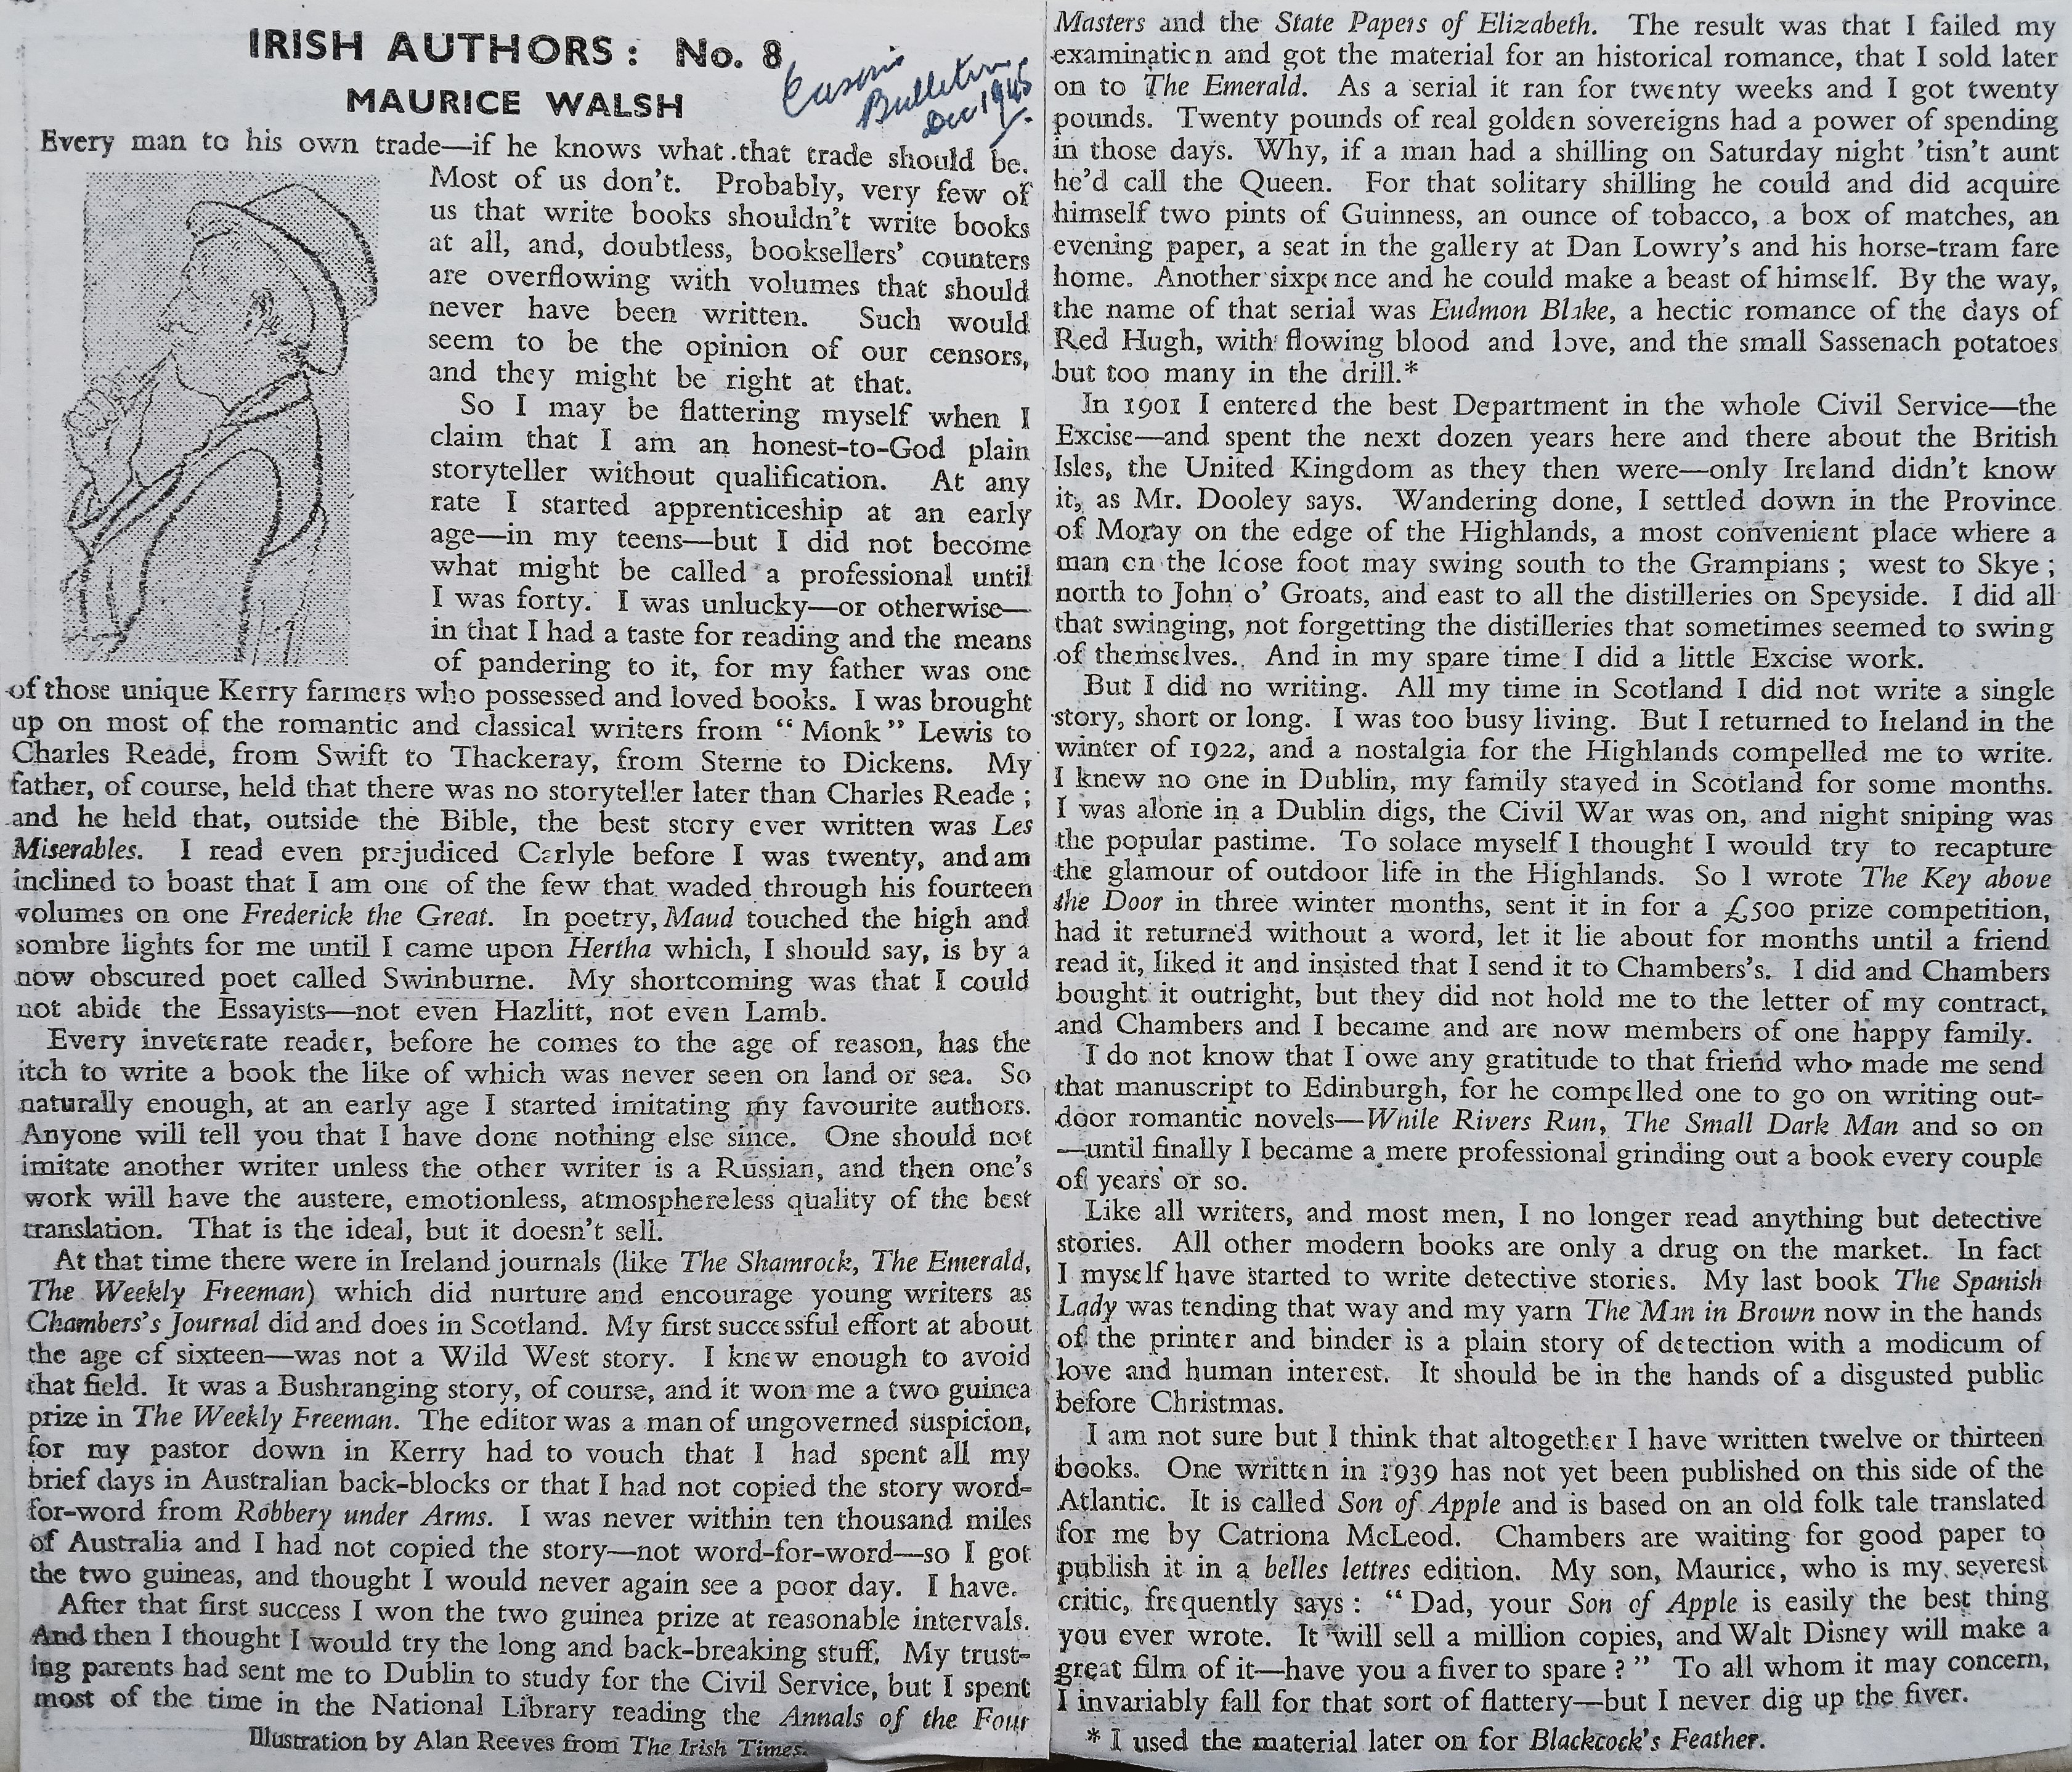 IRISH AUTHORS: No. 8
MAURICE WALSH
Easons
Bulletin
Dec 1945
Every man to his own trade—if he knows what that trade should be.
Most of us don't. Probably, very few of
us that write books shouldn't write books
at all, and, doubtless, booksellers' counters
are overflowing with volumes that should
never have been written. Such would
seem to be the opinion of our censors,
and they might be right at that.
So I may be flattering myself when I
claim that I am an honest-to-God plain
storyteller without qualification. At any
rate I started apprenticeship at an early
age—in my teens—but I did not become
what might be called a professional until
I was forty. I was unlucky—or otherwise—
in that I had a taste for reading and the means
of pandering to it, for my father was one
of those unique Kerry farmers who possessed and loved books. I was brought
up on most of the romantic and classical writers from "Monk" Lewis to
Charles Reade, from Swift to Thackeray, from Sterne to Dickens. My
father, of course, held that there was no storyteller later than Charles Reade;
and he held that, outside the Bible, the best story ever written was Les
Miserables. I read even prejudiced Carlyle before I was twenty, and am
inclined to boast that I am one of the few that waded through his fourteen
volumes on one Frederick the Great. In poetry, Maud touched the high and
sombre lights for me until I came upon Hertha which, I should say, is by a
now obscured poet called Swinburne. My shortcoming was that I could
not abide the Essayists—not even Hazlitt, not even Lamb.
Every inveterate reader, before he comes to the age of reason, has the
itch to write a book the like of which was never seen on land or sea. So
naturally enough, at an early age I started imitating my favourite authors.
Anyone will tell you that I have done nothing else since. One should not
imitate another writer unless the other writer is a Russian, and then one's
work will have the austere, emotionless, atmosphereless quality of the best
translation. That is the ideal, but it doesn't sell.
At that time there were in Ireland journals (like The Shamrock, The Emerald,
The Weekly Freeman) which did nurture and encourage young writers as
Chambers's Journal did and does in Scotland. My first successful effort at about
the age of sixteen—was not a Wild West story. I knew enough to avoid
that field. It was a Bushranging story, of course, and it won me a two guinea
prize in The Weekly Freeman. The editor was a man of ungoverned suspicion,
for my pastor down in Kerry had to vouch that I had spent all my
brief days in Australian back-blocks or that I had not copied the story word-
for-word from Robbery under Arms. I was never within ten thousand miles
of Australia and I had not copied the story—not word-for-word—so I got
the two guineas, and thought I would never again see a poor day. I have.
After that first success I won the two guinea prize at reasonable intervals.
And then I thought I would try the long and back-breaking stuff. My trust-
ing parents had sent me to Dublin to study for the Civil Service, but I spent
most of the time in the National Library reading the Annals of the Four
Illustration by Alan Reeves from The Irish Times.
Masters and the State Papers of Elizabeth. The result was that I failed my
examination and got the material for an historical romance, that I sold later
on to The Emerald. As a serial it ran for twenty weeks and I got twenty
pounds. Twenty pounds of real golden sovereigns had a power of spending
in those days. Why, if a man had a shilling on Saturday night 'tisn't aunt
he'd call the Queen. For that solitary shilling he could and did acquire
himself two pints of Guinness, an ounce of tobacco, a box of matches, an
evening paper, a seat in the gallery at Dan Lowry's and his horse-tram fare
home. Another sixpence and he could make a beast of himself. By the way,
the name of that serial was Eudmon Blake, a hectic romance of the days of
Red Hugh, with flowing blood and love, and the small Sassenach potatoes
but too many in the drill.*
In 1901 I entered the best Department in the whole Civil Service—the
Excise—and spent the next dozen years here and there about the British
Isles, the United Kingdom as they then were—only Ireland didn't know
it, as Mr. Dooley says. Wandering done, I settled down in the Province
of Moray on the edge of the Highlands, a most convenient place where a
man on the loose foot may swing south to the Grampians; west to Skye;
north to John o' Groats, and east to all the distilleries on Speyside. I did all
that swinging, not forgetting the distilleries that sometimes seemed to swing
of themselves. And in my spare time I did a little Excise work.
But I did no writing. All my time in Scotland I did not write a single
story, short or long. I was too busy living. But I returned to Ireland in the
winter of 1922, and a nostalgia for the Highlands compelled me to write.
I knew no one in Dublin, my family stayed in Scotland for some months.
I was alone in a Dublin digs, the Civil War was on, and night sniping was
the popular pastime. To solace myself I thought I would try to recapture
the glamour of outdoor life in the Highlands. So I wrote The Key above
the Door in three winter months, sent it in for a £500 prize competition,
had it returned without a word, let it lie about for months until a friend
read it, liked it and insisted that I send it to Chambers's. I did and Chambers
bought it outright, but they did not hold me to the letter of my contract,
and Chambers and I became and are now members of one happy family.
I do not know that I owe any gratitude to that friend who made me send
that manuscript to Edinburgh, for he compelled one to go on writing out-
door romantic novels—While Rivers Run, The Small Dark Man and so on
—until finally I became a mere professional grinding out a book every couple
of years or so.
Like all writers, and most men, I no longer read anything but detective
stories. All other modern books are only a drug on the market. In fact
I myself have started to write detective stories. My last book The Spanish
Lady was tending that way and my yarn The Man in Brown now in the hands
of the printer and binder is a plain story of detection with a modicum of
love and human interest. It should be in the hands of a disgusted public
before Christmas.
I am not sure but I think that altogether I have written twelve or thirteen
books. One written in 1939 has not yet been published on this side of the
Atlantic. It is called Son of Apple and is based on an old folk tale translated
for me by Catriona McLeod. Chambers are waiting for good paper to
publish it in a belles lettres edition. My son, Maurice, who is my severest
critic, frequently says: "Dad, your Son of Apple is easily the best thing
you ever wrote. It will sell a million copies, and Walt Disney will make a
great film of it—have you a fiver to spare?" To all whom it may concern,
I invariably fall for that sort of flattery—but I never dig up the fiver.
* I used the material later on for Blackcock's Feather.